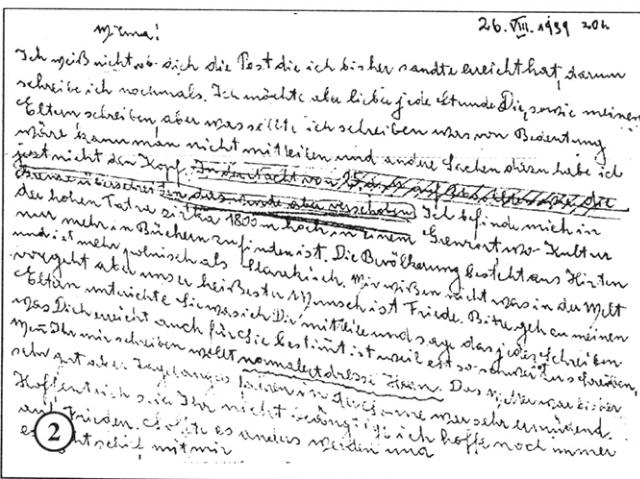 26. VIII. 1939 20h
Mirna!
Ich weiß nicht ob dich die Post die ich bisher sandte erreicht hat, darum
schreibe ich nochmals. Ich möchte aber lieber jede Stunde Dir, sowie meinen
Eltern schreiben aber was sollte ich schreiben was von Bedeutung
wäre kann man nicht mitteilen und andere Sachen habe ich
just nicht den Kopf. In der Nacht von 25 die
Grenze überschreiten das wurde aber verschoben Ich befinde mich in
der hohen Tatra zirka 1800 m hoch in einem Grenzort wo Kultur
nur mehr in Büchern zu finden ist. Die Bevölkerung besteht aus Hirten
und ist mehr polnisch als Slowakisch. Wir wißen nicht was in der Welt
vorgeht aber unser heißester Wunsch ist Friede. Bitte geh an meinen
Eltern unterichte Sie was ich Dir mitteile und sage das jedes Schreiben
was Dich erreicht auch für Sie bestimt ist weil es so
Wenn Ihr mir schreiben wollt normale Adresse Das Wetter war bisher
sehr gut aber Tagelanges in der Sonne war sehr ermüdend.
Hoffentlich seid Ihr nicht ich hoffe noch immer
auf Frieden. Sollte es anders werden und
es geht schief mit mir
2